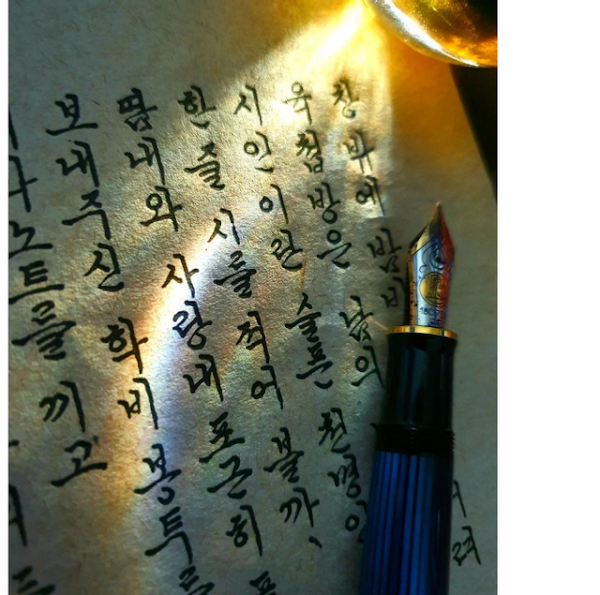 창 밖에 밤비 려
육첩방은 남의
시인이란 슬픈 천명인
한 줄 시를 적어 볼까,
땀내와 사랑내 포근히 품
보내주신 학비 봉투를
노트를 끼고